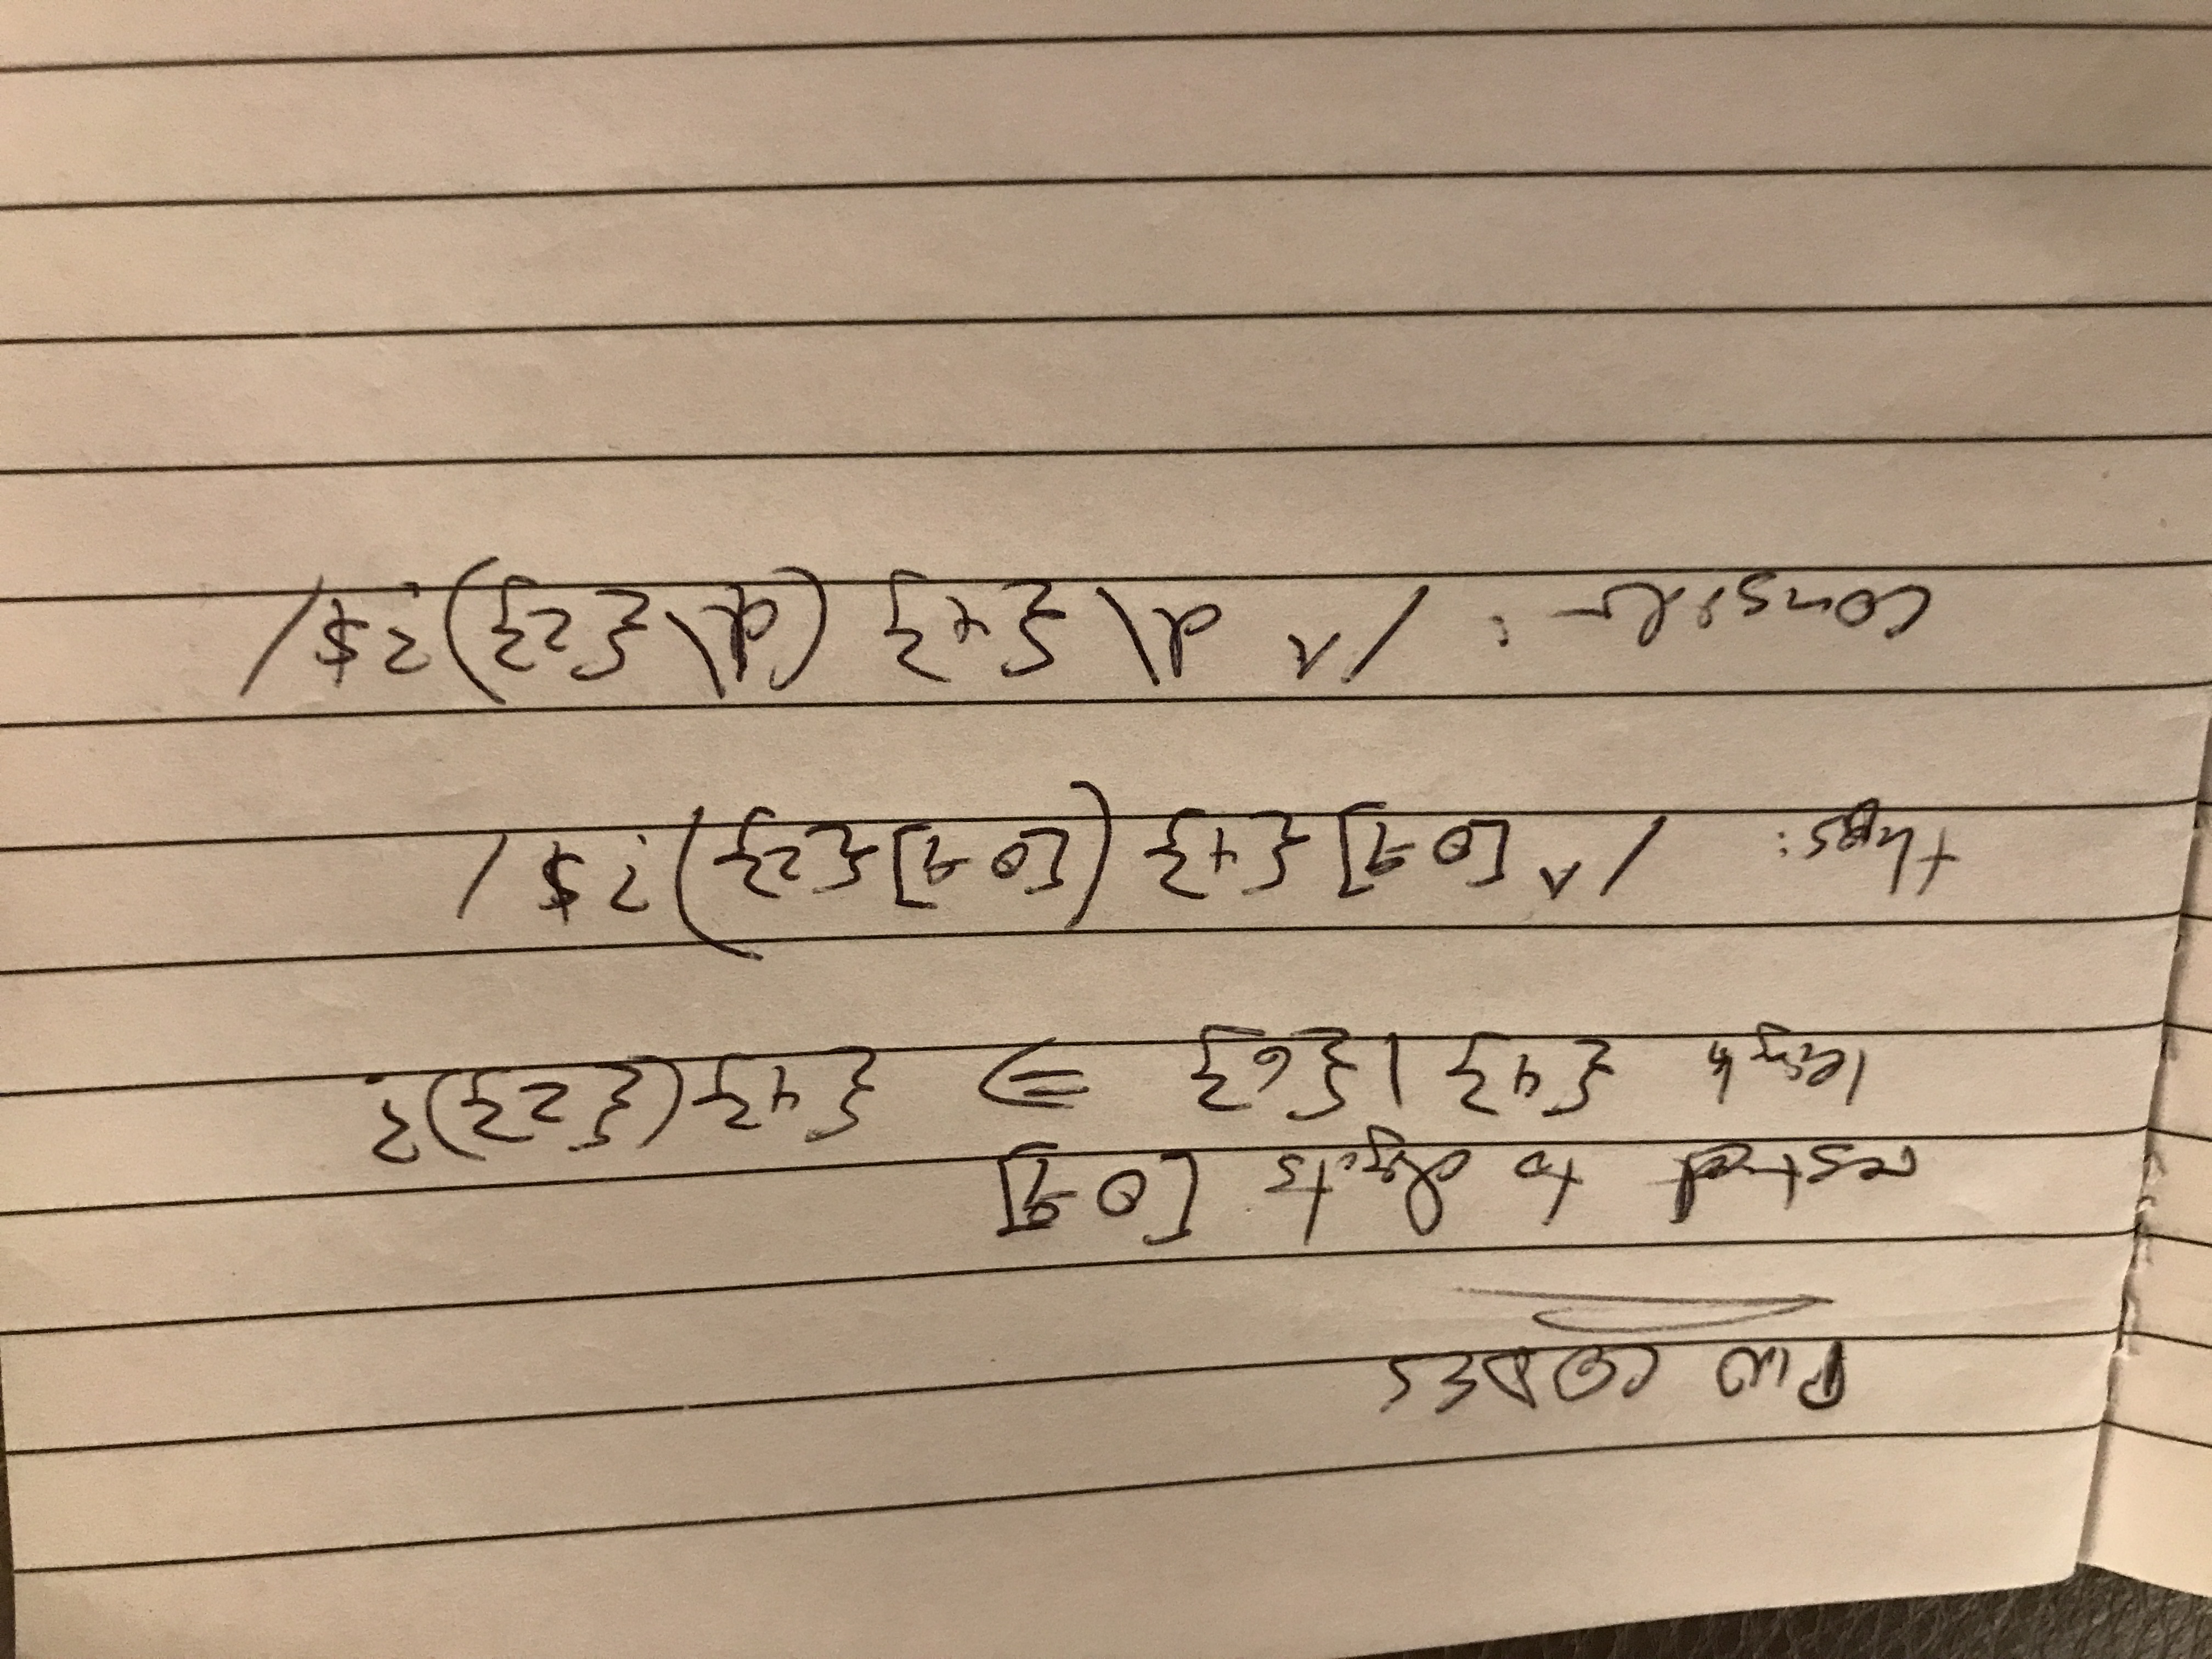 PIN CODES
restrict to digits [0-9]
length {4}|{6} => {4}({2})?
thus: /^[0-9]{4}([0-9]{2})?$/
Consider: /^d\{4}(d\{2})?$/